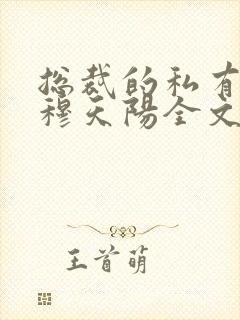 总裁的私有
穆天陽全文
王首萌